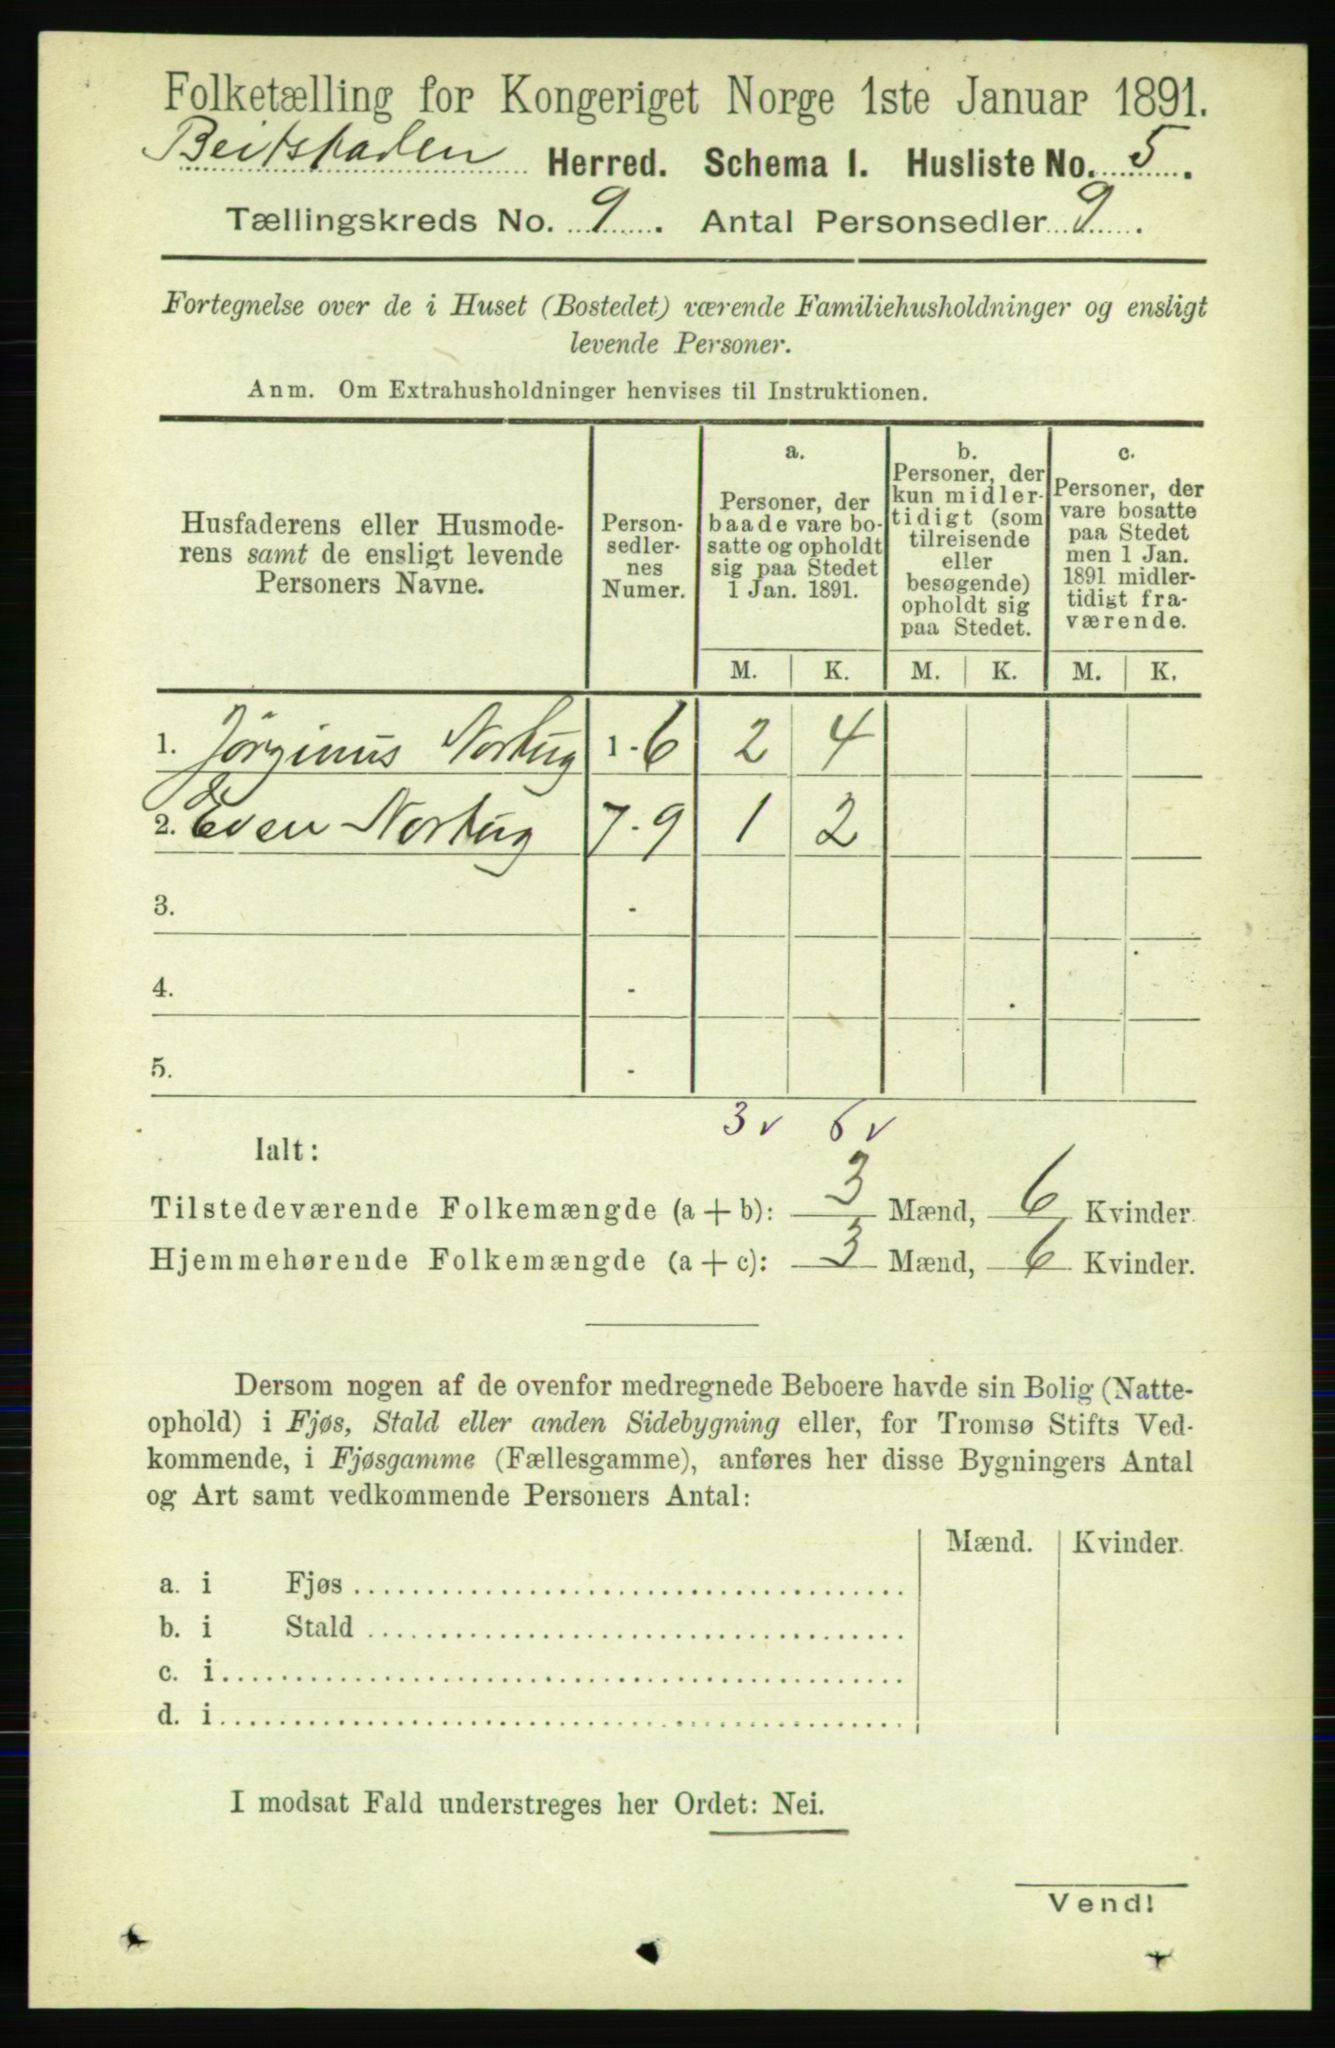 Folketælling for Kongeriget Norge 1ste Januar 1891.
Beitstaden Herred. Schema 1. Husliste No. 5.
Tællingskreds No. 9. Antal Personsedler 9.
Fortegnelse over de i Huset (Bostedet) værende Familiehusholdninger og ensligt
levende Personer.
Anm. Om Extrahusholdninger henvises til Instruktionen.
Husfaderens eller Husmode-
rens samt de ensligt levende
Personers Navne.
Person-
sedler-
nes
Numer.
a.
Personer, der
baade vare bo-
satte og opholdt
sig paa Stedet
1 Jan. 1891.
b.
Personer, der
kun midler-
tidigt (som
tilreisende
eller
besøgende)
opholdt sig
paa Stedet.
c.
Personer, der
vare bosatte
paa Stedet
men 1 Jan.
1891 midler-
tidigt fra-
værende.
M. K. M. K. M. K.
1. Jørginus Nortug 1-6 2 4
2. Even Nortug 7-9 1 2
3. -
4. -
5. -
3 v 6 v
Ialt:
Tilstedeværende Folkemængde (a + b): 3 Mænd, 6 Kvinder.
Hjemmehørende Folkemængde (a + c): 3 Mænd, 6 Kvinder.
Dersom nogen af de ovenfor medregnede Beboere havde sin Bolig (Natte-
ophold) i Fjøs, Stald eller anden Sidebygning eller, for Tromsø Stifts Ved-
kommende, i Fjøsgamme (Fællesgamme), anføres her disse Bygningers Antal
og Art samt vedkommende Personers Antal:
Mænd. Kvinder.
a. i Fjøs
b. i Stald
c. i
d. i
I modsat Fald understreges her Ordet: Nei.
Vend!